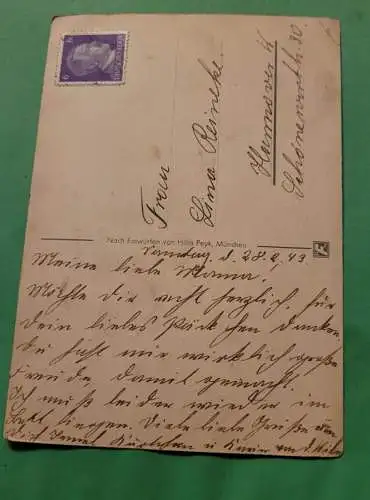 Frau
Lina Reineke.
Hannover
Nach Entwürfen von Hilla Peyk, München
Sonntag, d. 28. 43
Meine liebe Mama.
Möchte dir recht herzlich für
dein liebes Päckchen danken
du hast mir wirklich große
Freude damit gemacht.
Ich muß leider wieder im
Bett liegen. Viele liebe Grüße